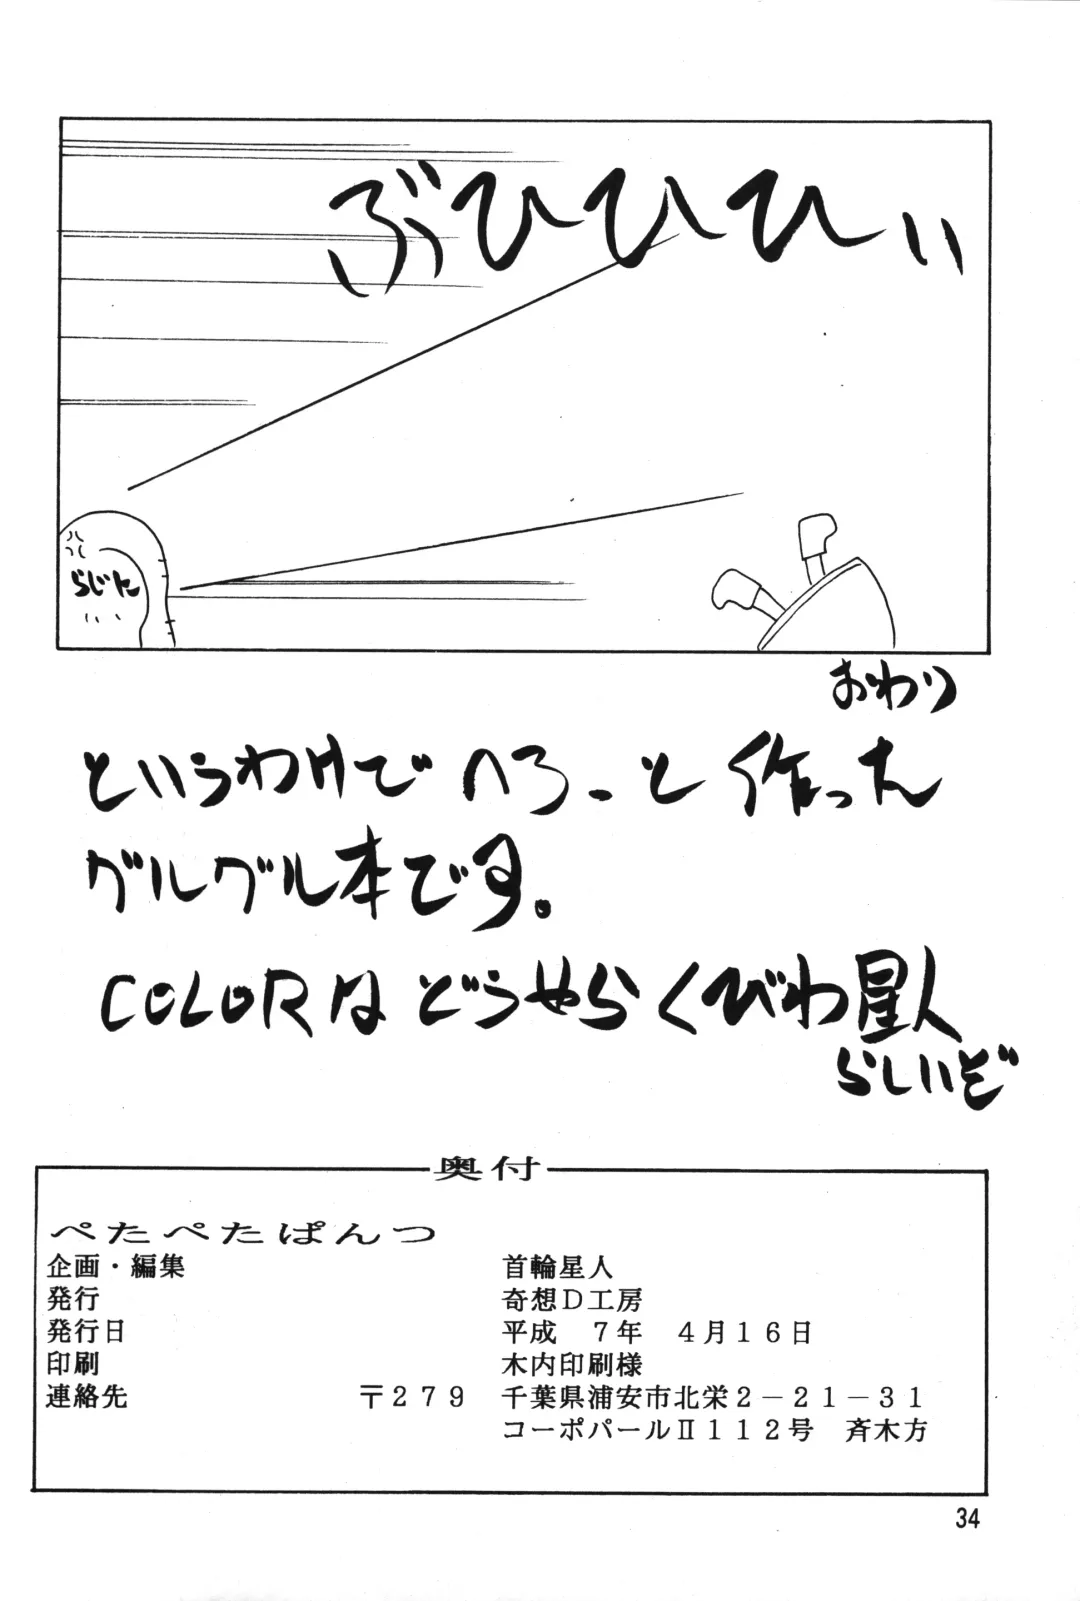 ぶひひひぃ
らじに
おわり
というわけでへろーと作った
グルグル本です。
COLORはどうやらくびわ星人
らしいぞ
奥付
ぺたぺたぱんつ
企画・編集 首輪星人
発行 奇想D工房
発行日 平成 7年 4月16日
印刷 木内印刷様
連絡先 〒279 千葉県浦安市北栄2-21-31
コーポパールⅡ112号 斉木方
34